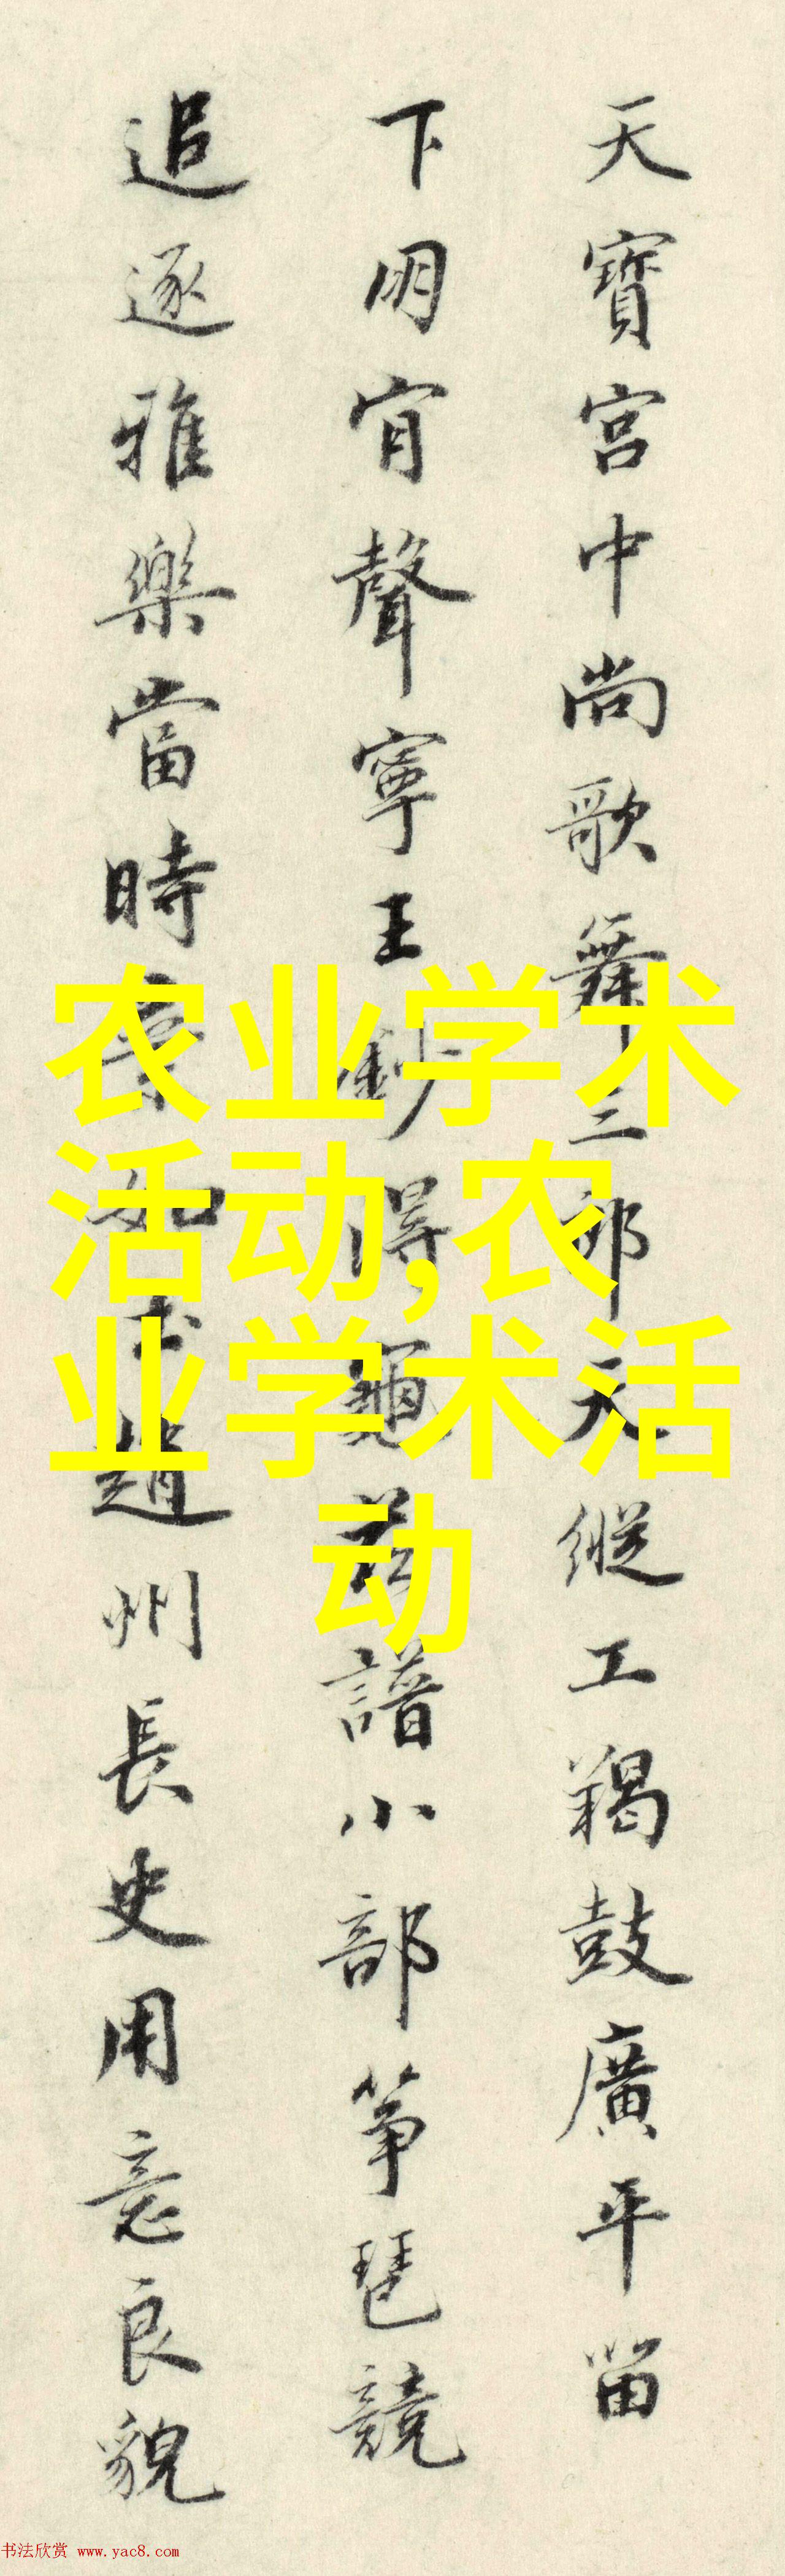 天寶宮中尚歌舞三郎天縱工羯鼓廣平留
下朋肎聲寧王鈔得龜茲譜小部筝琶競
追逐雅樂當時如土趙州長史用意良貌
农业学术
活动,农
业学术活
动
书法欣赏 www.yac8.com